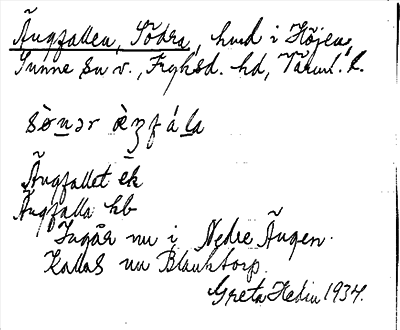 Ängfallen, Södra, hmd i Höjen,
Sunne sn v., Fryksd. hd, Värml. l.
sònər ǽŋfála
Ängfallet ek
Ängfalla hb
Ingår nu i Nedre Ängen.
Kallas nu Blanktorp.
Greta Hedin 1934.